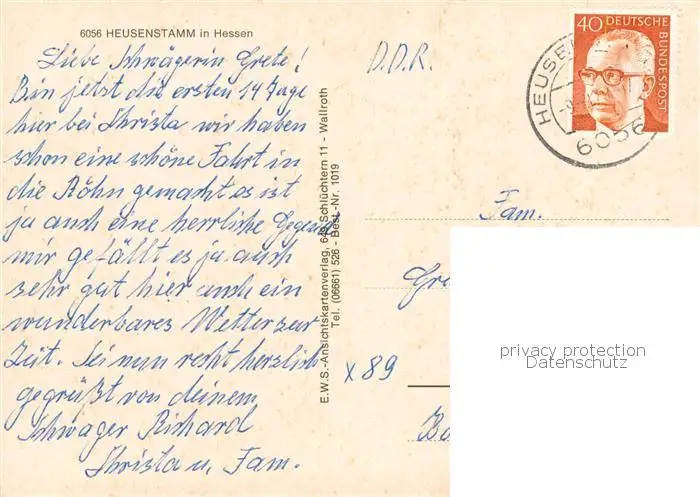 6056 HEUSENSTAMM in Hessen
Liebe Schwägerin Grete!
Bin jetzt die ersten 14 Tage
hier bei Christa wir haben
schon eine schöne Fahrt in
die Röhn gemacht es ist
ja auch eine herrliche Gegend
mir gefällt es ja auch
sehr gut hier auch ein
wunderbares Wetter zur
Zeit. Sei nun recht herzlich
gegrüßt von deinem
Schwager Richard
Christa u. Fam.
E.W.S.-Ansichtskartenverlag, 649 Schlüchtern 11 - Wallroth
Tel. (06661) 526 - Best.-Nr. 1019
D.D.R.
40 DEUTSCHE
BUNDESPOST
HEUSE
6056
Fam.
Gre
x 89
privacy protection
Datenschutz